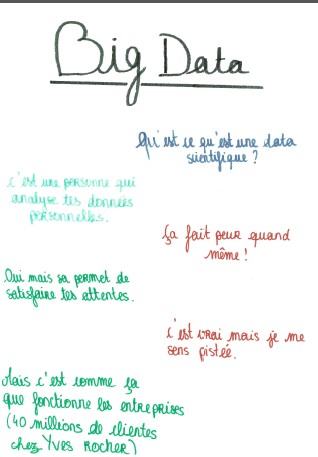 Big Data
Qu'est ce qu'est une data
scientifique ?
C'est une personne qui
analyse tes données
personnelles.
Ça fait peur quand
même !
Oui mais sa permet de
satisfaire tes attentes.
C'est vrai mais je me
sens pistée.
Mais c'est comme ça
que fonctionne les entreprises
(40 millions de clientes
chez Yves Rocher)